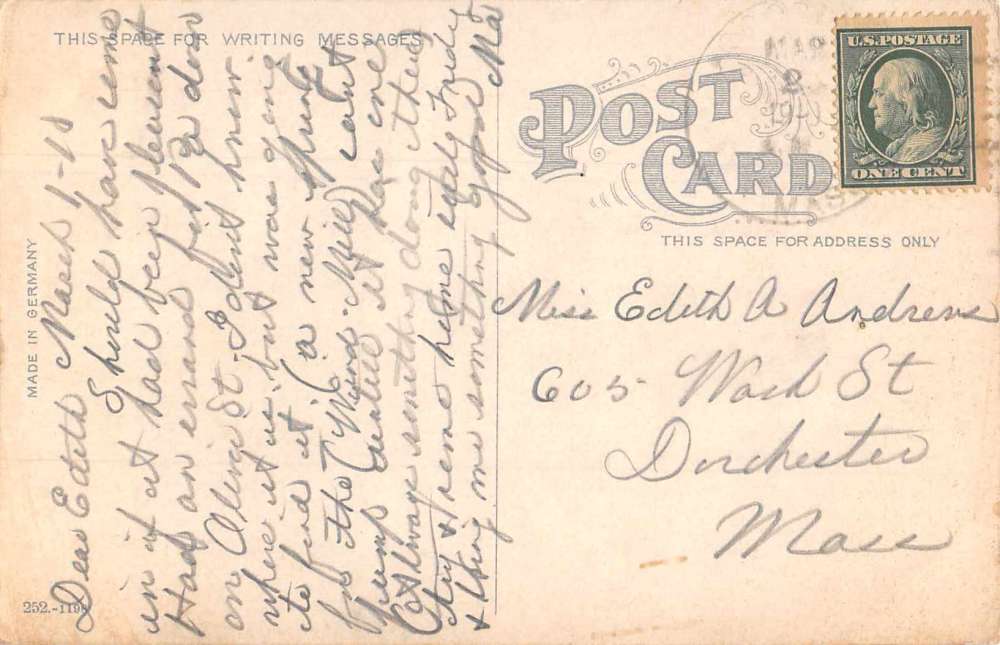 THIS SPACE FOR WRITING MESSAGES
POST CARD
U.S. POSTAGE
ONE CENT
MAR
2
MASS
THIS SPACE FOR ADDRESS ONLY
MADE IN GERMANY
252.-119
Dear Edith March 1-10
Should have come
in if it had been pleasant
Had an errand for
on Albion St. I dont know
where it is but was going
to find it (a new spring
for the Wind-Mill
pump
Always something doing there
home early Friday
& they me something good Ma
Miss Edith A Andrews
605 Wash St
Dorchester
Mass